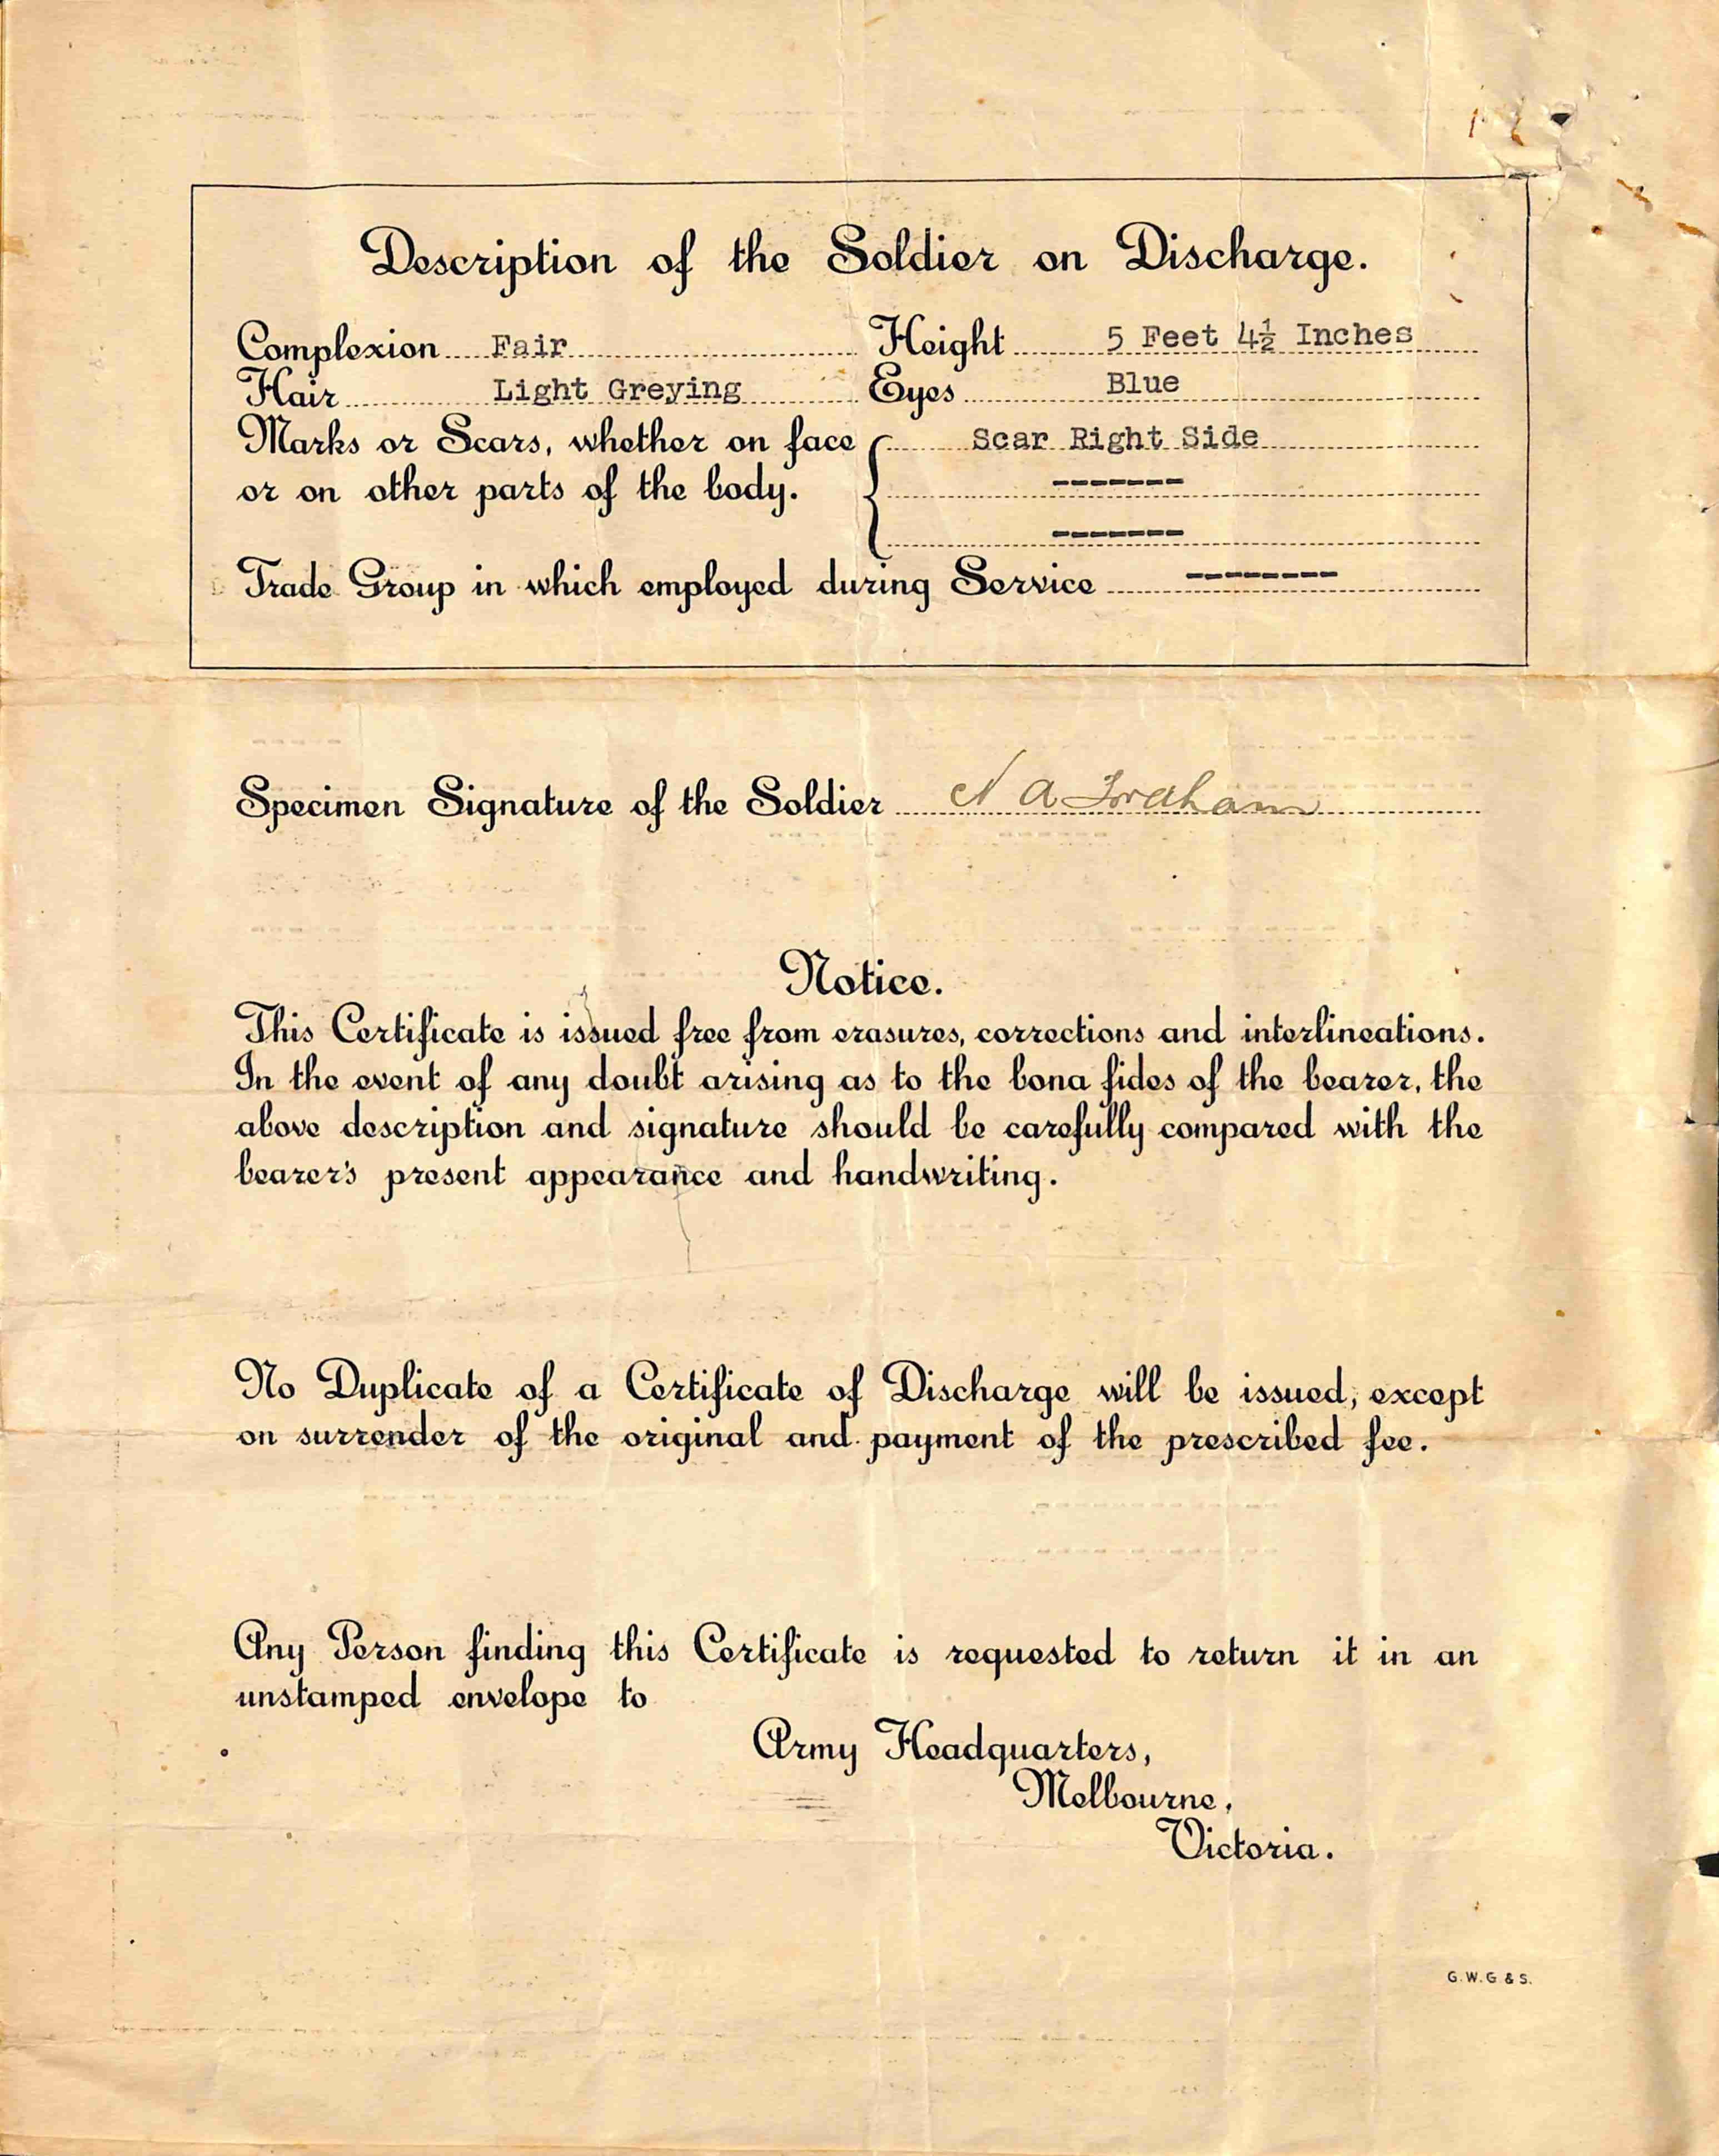 Description of the Soldier on Discharge.
Complexion Fair Height 5 Feet 4½ Inches
Hair Light Greying Eyes Blue
Marks or Scars, whether on face Scar Right Side
or on other parts of the body. -------
-------
Trade Group in which employed during Service --------
Specimen Signature of the Soldier N A Graham
Notice.
This Certificate is issued free from erasures, corrections and interlineations.
In the event of any doubt arising as to the bona fides of the bearer, the
above description and signature should be carefully compared with the
bearer's present appearance and handwriting.
No Duplicate of a Certificate of Discharge will be issued, except
on surrender of the original and payment of the prescribed fee.
Any Person finding this Certificate is requested to return it in an
unstamped envelope to
Army Headquarters,
Melbourne,
Victoria.
G.W.G & S.